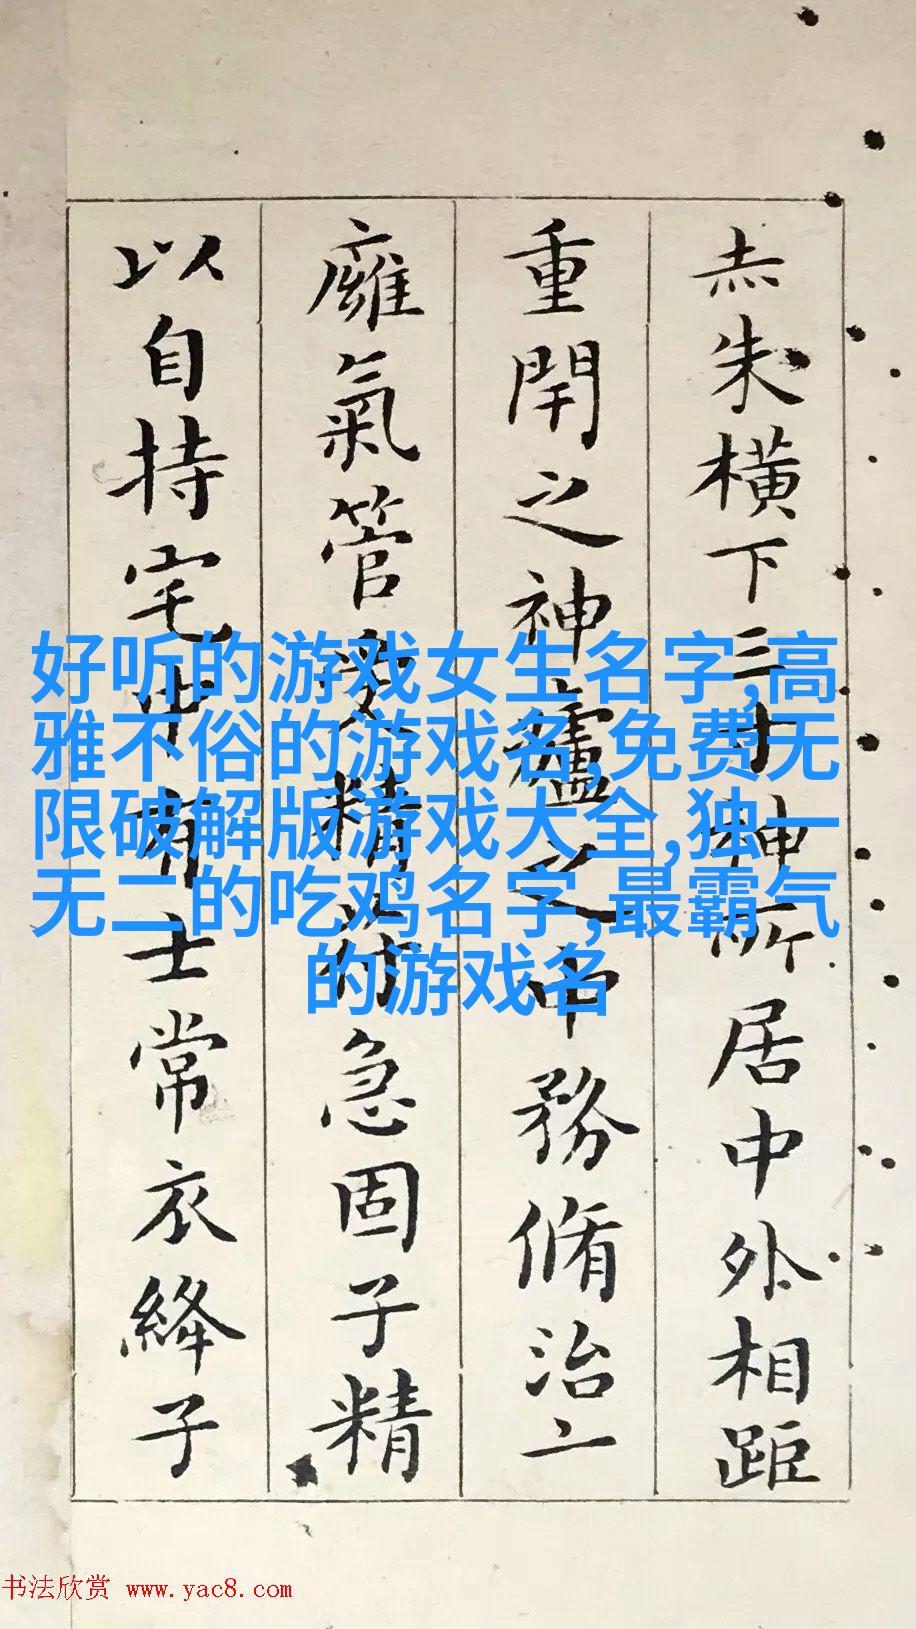 赤朱橫下三寸神所居中外相距
重閇之神廬之中務脩治
廱氣管受精苻急固子精
以自持宅中有士常衣絳子
好听的游戏女生名字,高
雅不俗的游戏名,免费无
限破解版游戏大全,独一
无二的吃鸡名字,最霸气
的游戏名
书法欣赏 www.yac8.com